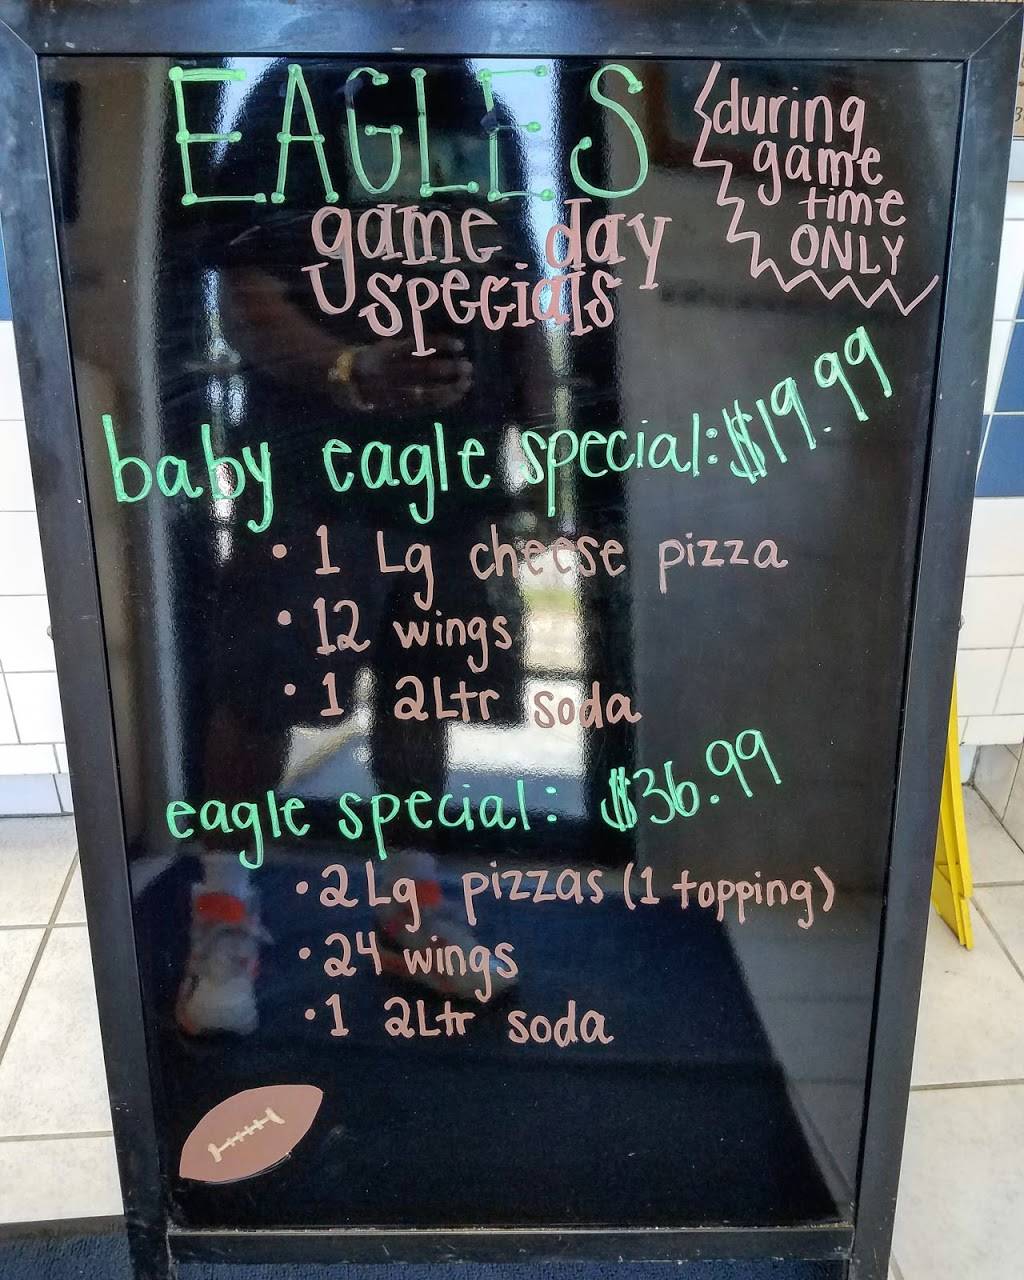 EAGLES
game day
specials
during
game
time
ONLY
baby eagle special: $19.99
• 1 Lg cheese pizza
• 12 wings
• 1 2Ltr soda
eagle special: $36.99
• 2 Lg pizzas (1 topping)
• 24 wings
• 1 2Ltr soda